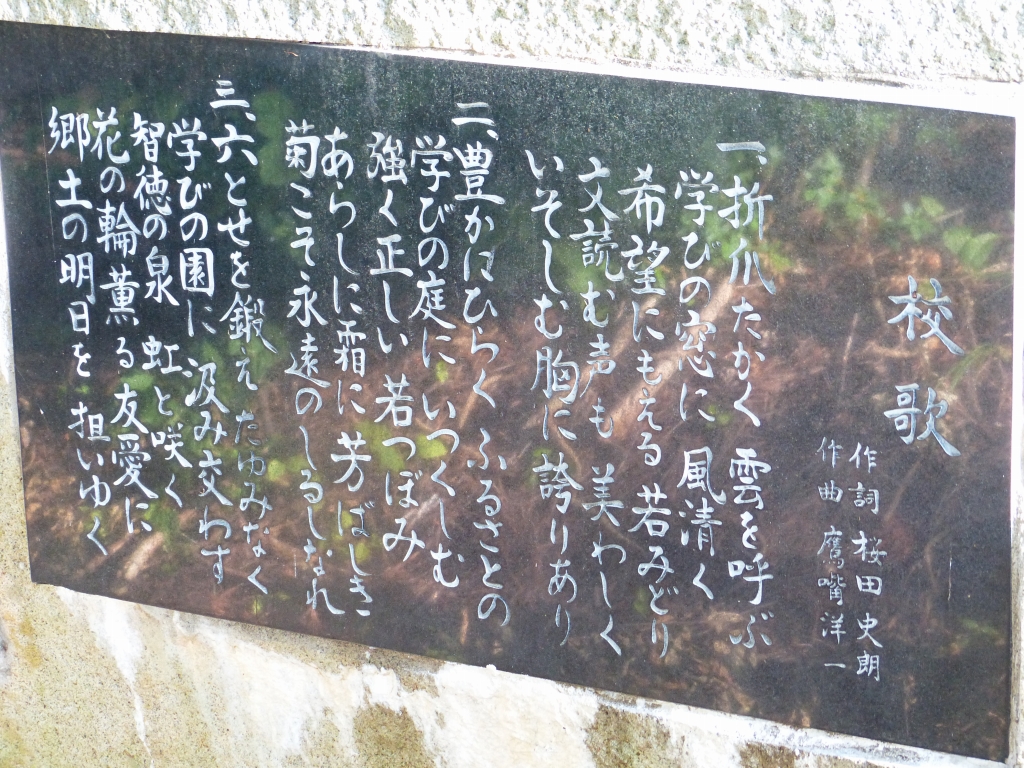 校歌
作詞 桜田史朗
作曲 鷹嘴洋一
一、折爪たかく 雲を呼ぶ
学びの窓に 風清く
希望にもえる 若みどり
文読む声も 美わしく
いそしむ胸に 誇りあり
二、豊かにひらく ふるさとの
学びの庭に いつくしむ
強く正しい 若つぼみ
あらしに霜に 芳ばしき
菊こそ永遠の しるしなれ
三、六とせを鍛え たゆみなく
学びの園に 汲み交わす
智徳の泉 虹と咲く
花の輪薫る 友愛に
郷土の明日を 担いゆく